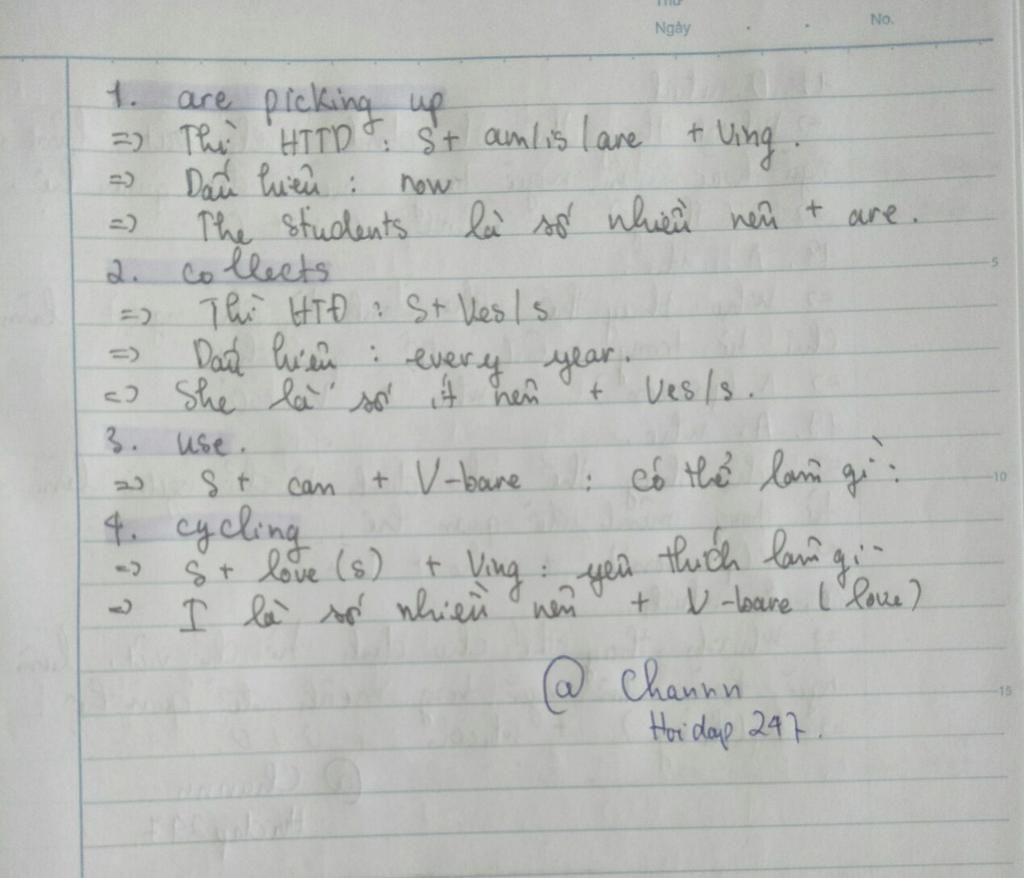 Thứ
Ngày . . No.
1. are picking up
=> Thì HTTD : S + am/is/are + Ving.
=> Dấu hiệu : now
=> The students là số nhiều nên + are.
5
2. collects
=> Thì HTĐ : S + Ves/s
=> Dấu hiệu : every year.
=> She là số ít nên + Ves/s.
3. use.
=> S + can + V-bare : có thể làm gì :
10
4. cycling
=> S + love(s) + Ving : yêu thích làm gì
=> I là số nhiều nên + V-bare (love)
15
@ Channn
Hoidap 247.